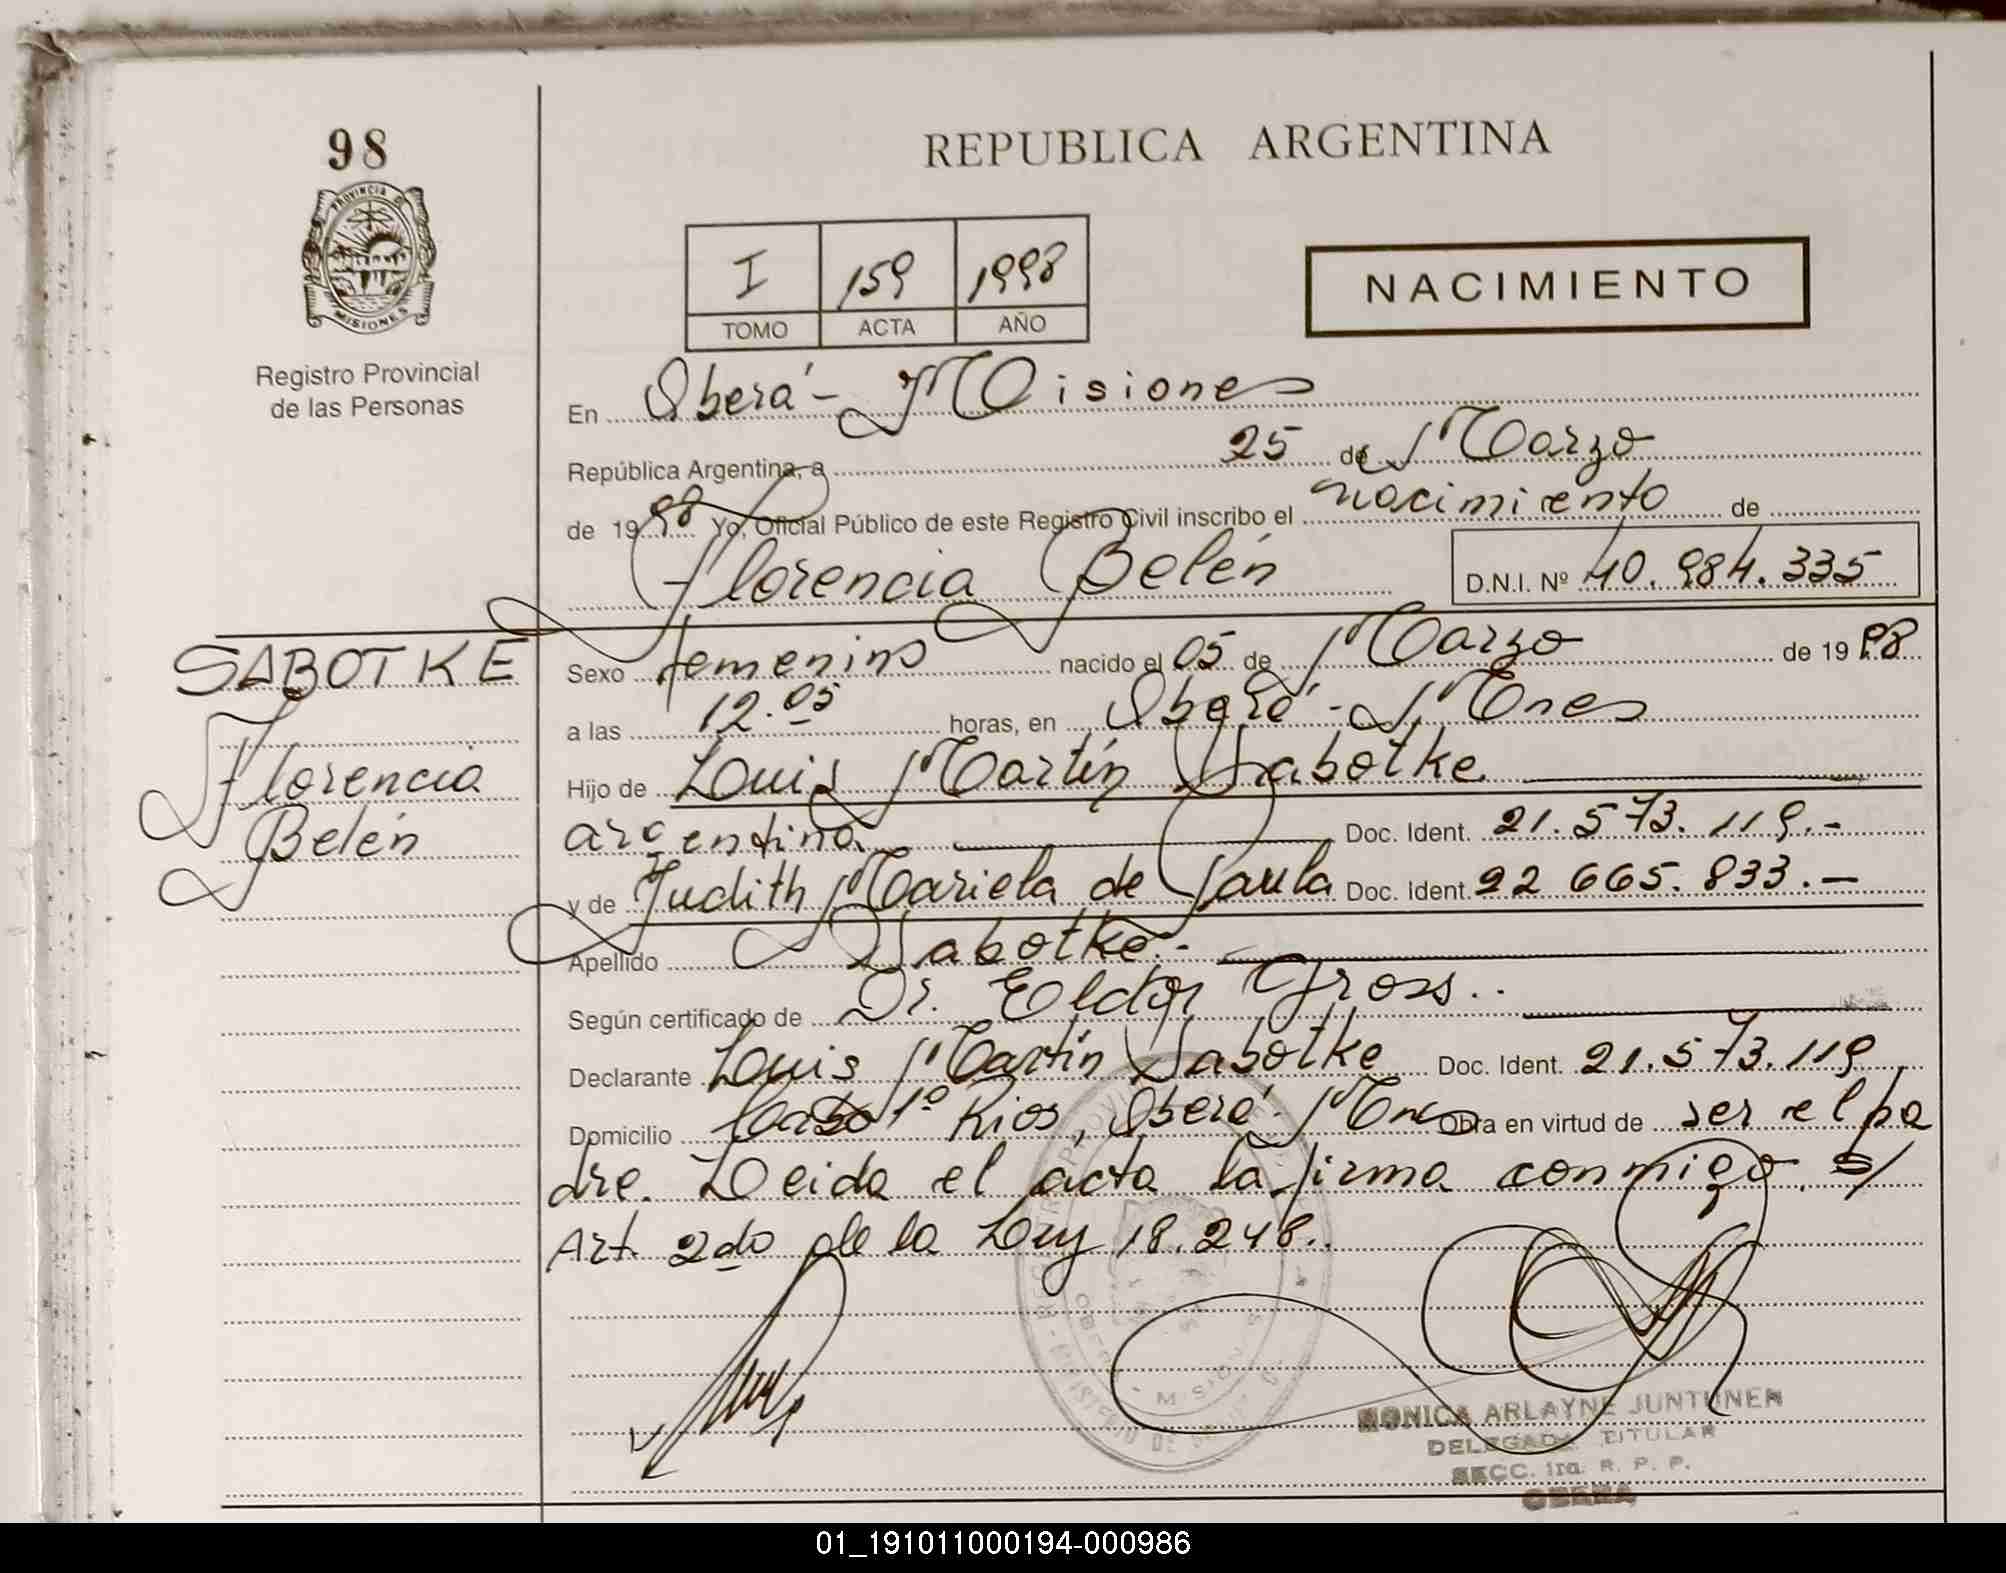 98
REPUBLICA ARGENTINA
PROVINCIA D
MISIONES
Registro Provincial
de las Personas
I 159 1998
TOMO ACTA AÑO
NACIMIENTO
En Oberá - Misiones
República Argentina, a 25 de Marzo
de 1998 Yo, Oficial Público de este Registro Civil inscribo el nacimiento de
Florencia Belén D.N.I. Nº 40.984.335
SABOTKE
Florencia
Belén
Sexo femenino nacido el 05 de Marzo de 1998
a las 12.05 horas, en Oberá - Mnes
Hijo de Louis Martín Sabotke.
argentino. Doc. Ident. 21.573.119.-
y de Judith Mariela de Paula Doc. Ident. 22 665.833.-
Apellido Sabotke.-
Según certificado de Dr. Eldor Gross..
Declarante Louis Martín Sabotke Doc. Ident. 21.573.119
Domicilio 1º Rios, Oberá - Mnes Obra en virtud de ser el pa
dre. Leida el acta la firma conmigo. s/
Art. 2do de la Ley 18.248..
MONICA ARLAYNE JUNTUNEN
DELEGADA TITULAR
SECC. 1ra. R. P. P.
OBERA
01_191011000194-000986